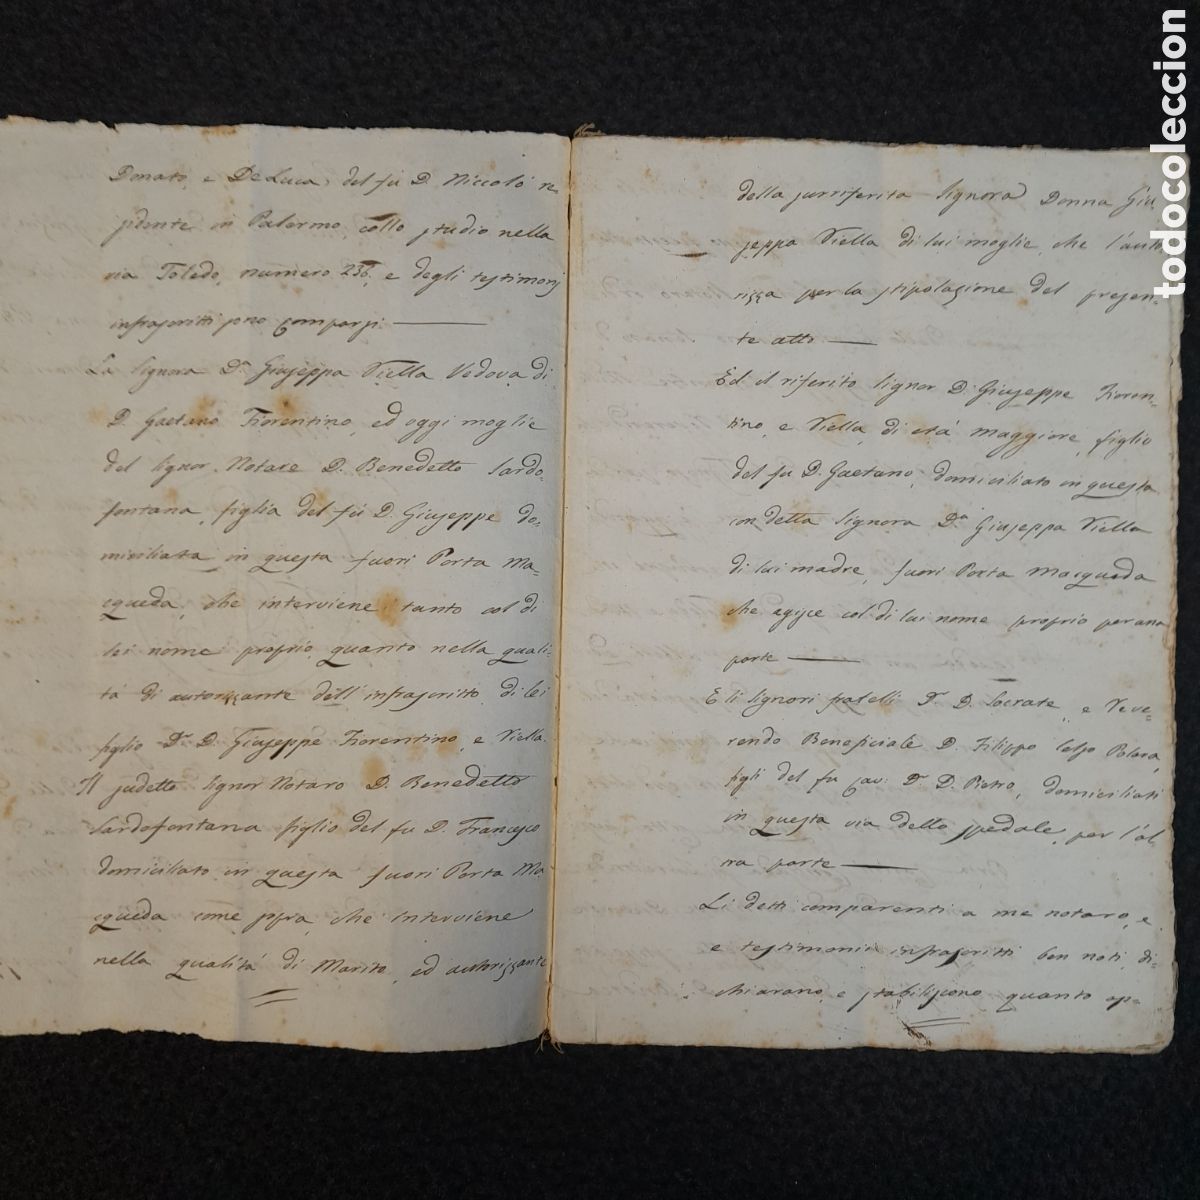 Donato, e DeLuca, del fu D. Niccolò re-
sidente in Palermo, collo studio nella
via Toledo, numero 236, e degli testimonj
infrascritti sono comparsi.
La Signora Da. Giuseppa Viella Vedova di
D. Gaetano Fiorentino, ed oggi moglie
del Signor Notaro D. Benedetto Sardo-
fontana, figlia del fu D. Giuseppe do-
miciliata in questa fuori Porta Ma-
cqueda, che interviene tanto col di
lei nome proprio, quanto nella quali-
tà di autorizzante dell'infrascritto di lei
figlio Dr. D. Giuseppe Fiorentino, e Viella.
Il sudetto Signor Notaro D. Benedetto
Sardofontana figlio del fu D. Francesco
domiciliato in questa fuori Porta Ma-
cqueda come sopra, che interviene
nella qualità di Marito, ed autorizzante
della surriferita Signora Donna Giu-
seppa Viella di lui moglie, che l'auto-
rizza per la stipolazione del presen-
te atto
Ed il riferito Signor D. Giuseppe Fioren-
tino, e Viella, di età maggiore, figlio
del fu D. Gaetano, domiciliato in questa
con detta Signora Da. Giuseppa Viella
di lui madre, fuori Porta Macqueda
che agisce col di lui nome proprio per una
parte
E li Signori fratelli Dr. D. Socrate, e Reve-
rendo Beneficiale D. Filippo Polara,
figli del fu Cav: Dr. D. Pietro, domiciliati
in questa via dello Spedale, per l'al-
tra parte
Li detti comparenti a me notaro, e
e testimonii infrascritti ben noti, di-
chiarano, e stabiliscono quanto ap-
todocoleccion